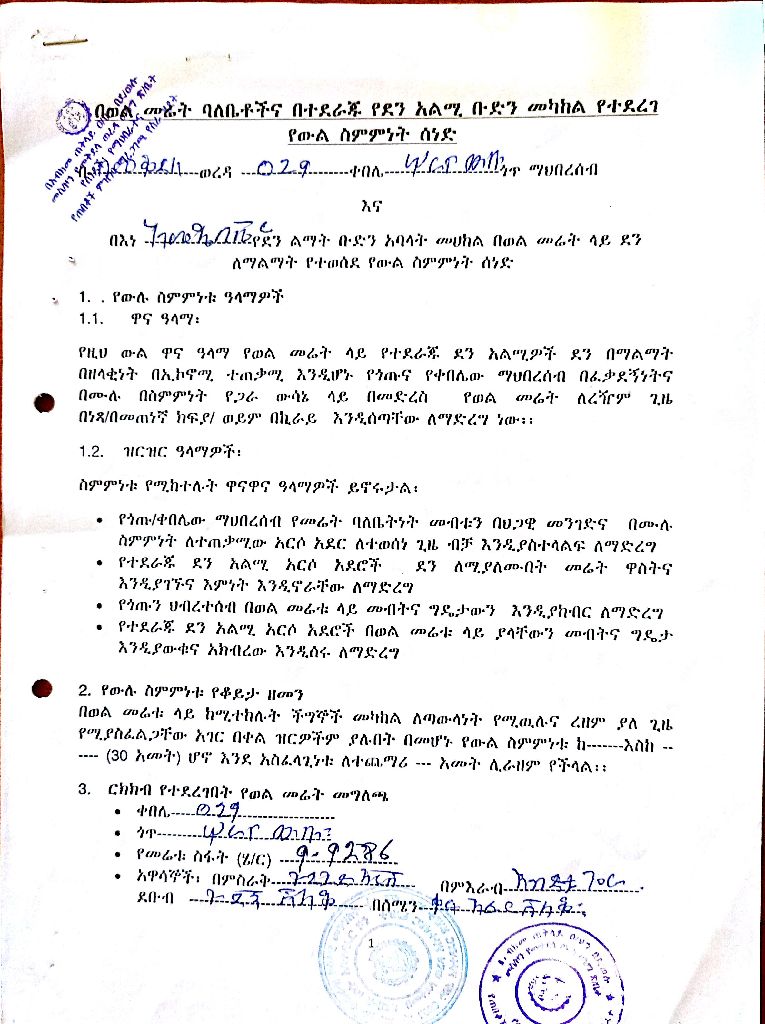 በወል መሬት ባለቤቶችና በተደራጁ የደን አልሚ ቡድን መካከል የተደረገ
የውል ስምምነት ሰነድ
ወረዳ 029 ቀበሌ ነጥ ማህበረሰብ
እና
በእነ የደን ልማት ቡድን አባላት መሀከል በወል መሬት ላይ ደን
ለማልማት የተወሰደ የውል ስምምነት ሰነድ
1. . የውሉ ስምምነቱ ዓላማዎች
1.1. ዋና ዓላማ፡
የዚህ ውል ዋና ዓላማ የወል መሬት ላይ የተደራጁ ደን አልሚዎች ደን በማልማት
በዘላቂነት በኢኮኖሚ ተጠቃሚ እንዲሆኑ የጎጡና የቀበሌው ማህበረሰብ በፈቃደኝነትና
በሙሉ በስምምነት የጋራ ውሳኔ ላይ በመድረስ የወል መሬት ለረዥም ጊዜ
በነጻ/በመጠነኛ ክፍያ/ ወይም በኪራይ እንዲሰጣቸው ለማድረግ ነው፡፡
1.2. ዝርዝር ዓላማዎች፡
ስምምነቱ የሚከተሉት ዋናዋና ዓላማዎች ይኖሩታል፡
• የጎጡ/ቀበሌው ማህበረሰብ የመሬት ባለቤትነት መብቱን በህጋዊ መንገድና በሙሉ
ስምምነት ለተጠቃሚው አርሶ አደር ለተወሰነ ጊዜ ብቻ እንዲያስተላልፍ ለማድረግ
• የተደራጁ ደን አልሚ አርሶ አደሮች ደን ለሚያለሙበት መሬት ዋስትና
እንዲያገኙና እምነት እንዲኖራቸው ለማድረግ
• የጎጡን ህብረተሰብ በወል መሬቱ ላይ መብትና ግዴታውን እንዲያከብር ለማድረግ
• የተደራጁ ደን አልሚ አርሶ አደሮች በወል መሬቱ ላይ ያላቸውን መብትና ግዴታ
እንዲያውቁና አክብረው እንዲሰሩ ለማድረግ
2. የውሉ ስምምነቱ የቆይታ ዘመን
በወል መሬቱ ላይ ከሚተከሉት ችግኞች መካከል ለጣውላነት የሚዉሉና ረዘም ያለ ጊዜ
የሚያስፈልጋቸው አገር በቀል ዝርዎችም ያሉበት በመሆኑ የውል ስምምነቱ ከ-------እስከ --
---- (30 አመት) ሆኖ እንደ አስፈላጊነቱ ለተጨማሪ --- አመት ሊራዘም ይችላል፡፡
3. ርክክብ የተደረገበት የወል መሬት መግለጫ
• ቀበሌ 029
• ጎጥ
• የመሬቱ ስፋት (ሄ/ር)
• አዋሳኞች፡ በምስራት በምእራብ
ደቡብ በሰሜን
1